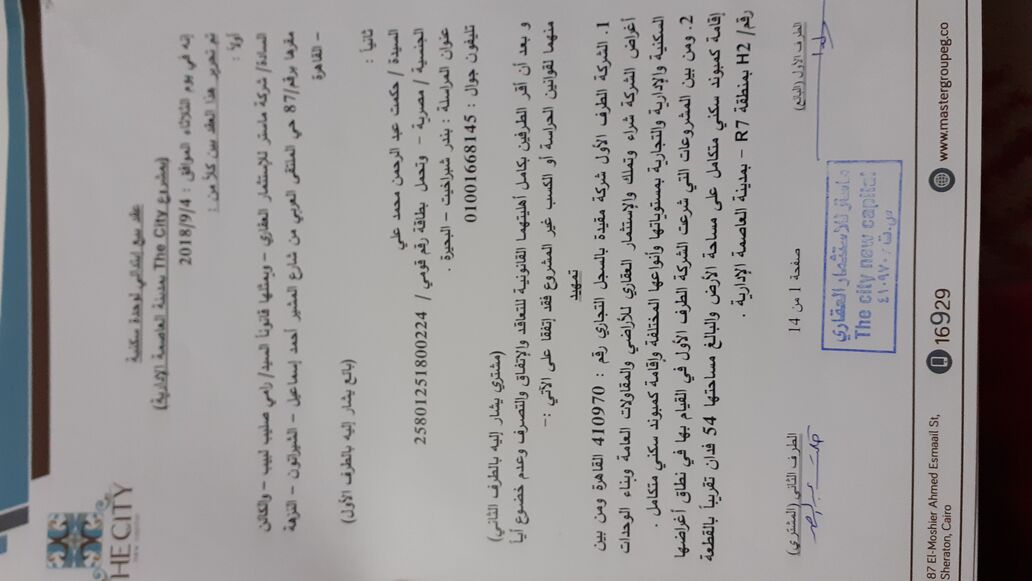 THE CITY
عقد بيع إبتدائي لوحدة سكنية
(مشروع The City بمدينة العاصمة الإدارية)
إنه في يوم الثلاثاء الموافق : 2018/9/4
تم تحرير هذا العقد بين كلاً من :
أولاً :
السادة/ شركة ماستر للإستثمار العقاري - ويمثلها قانوناً السيد/ رامي صليب لبيب - والكائن
مقرها برقم/ 87 حي المنتقى العربي من شارع المشير أحمد إسماعيل - الشيراتون - النزهة
- القاهرة
(بائع يشار إليه بالطرف الأول)
ثانياً :
السيدة / حكمت عبد الرحمن محمد علي
الجنسية / مصرية - وتحمل بطاقة رقم قومي / 25801251800224
عنوان المراسلة : بندر شبراخيت - البحيرة .
تليفون جوال : 01001668145
(مشتري يشار إليه بالطرف الثاني)
و بعد أن أقر الطرفين بكامل أهليتهما القانونية للتعاقد والإتفاق والتصرف وعدم خضوع أياً
منهما لقوانين الحراسة أو الكسب غير المشروع فقد إتفقا على الآتي :-
تمهيد
1. الشركة الطرف الأول شركة مقيدة بالسجل التجاري رقم : 410970 القاهرة ومن بين
أغراض الشركة شراء وتملك والإستثمار العقاري للأراضي والمقاولات العامة وبناء الوحدات
السكنية والإدارية والتجارية بمستوياتها وأنواعها المختلفة وإقامة كمبوند سكني متكامل .
2. ومن بين المشروعات التي شرعت الشركة الطرف الأول في القيام بها في نطاق أغراضها
إقامة كمبوند سكني متكامل على مساحة الأرض والبالغ مساحتها 54 فدان تقريباً بالقطعة
رقم/ H2 بمنطقة R7 - بمدينة العاصمة الإدارية .
الطرف الأول (البائع)
صفحة 1 من 14
الطرف الثاني (المشتري)
ماستر للاستثمار العقاري
The city new capital
س.ت: ٤١٠٩٧٠
87 El-Moshier Ahmed Esmaail St,
Sheraton, Cairo
16929
www.mastergroupeg.co